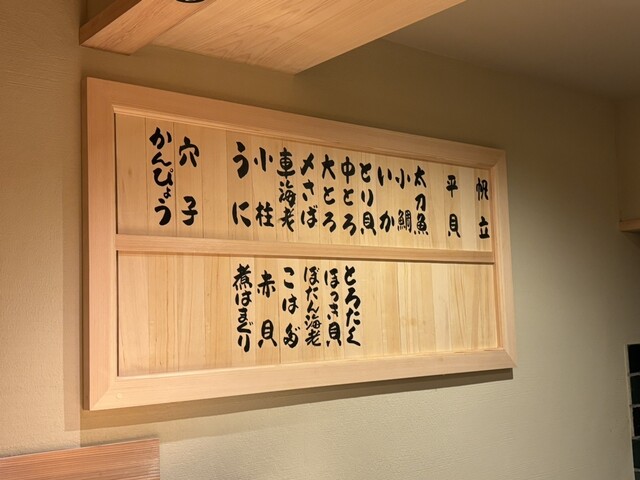 帆立
平貝
太刀魚
小鯛
いか
とり貝
中とろ
大とろ
〆さば
車海老
小柱
うに
穴子
かんぴょう
とろたく
ほっき貝
ぼたん海老
こはだ
赤貝
煮はまぐり